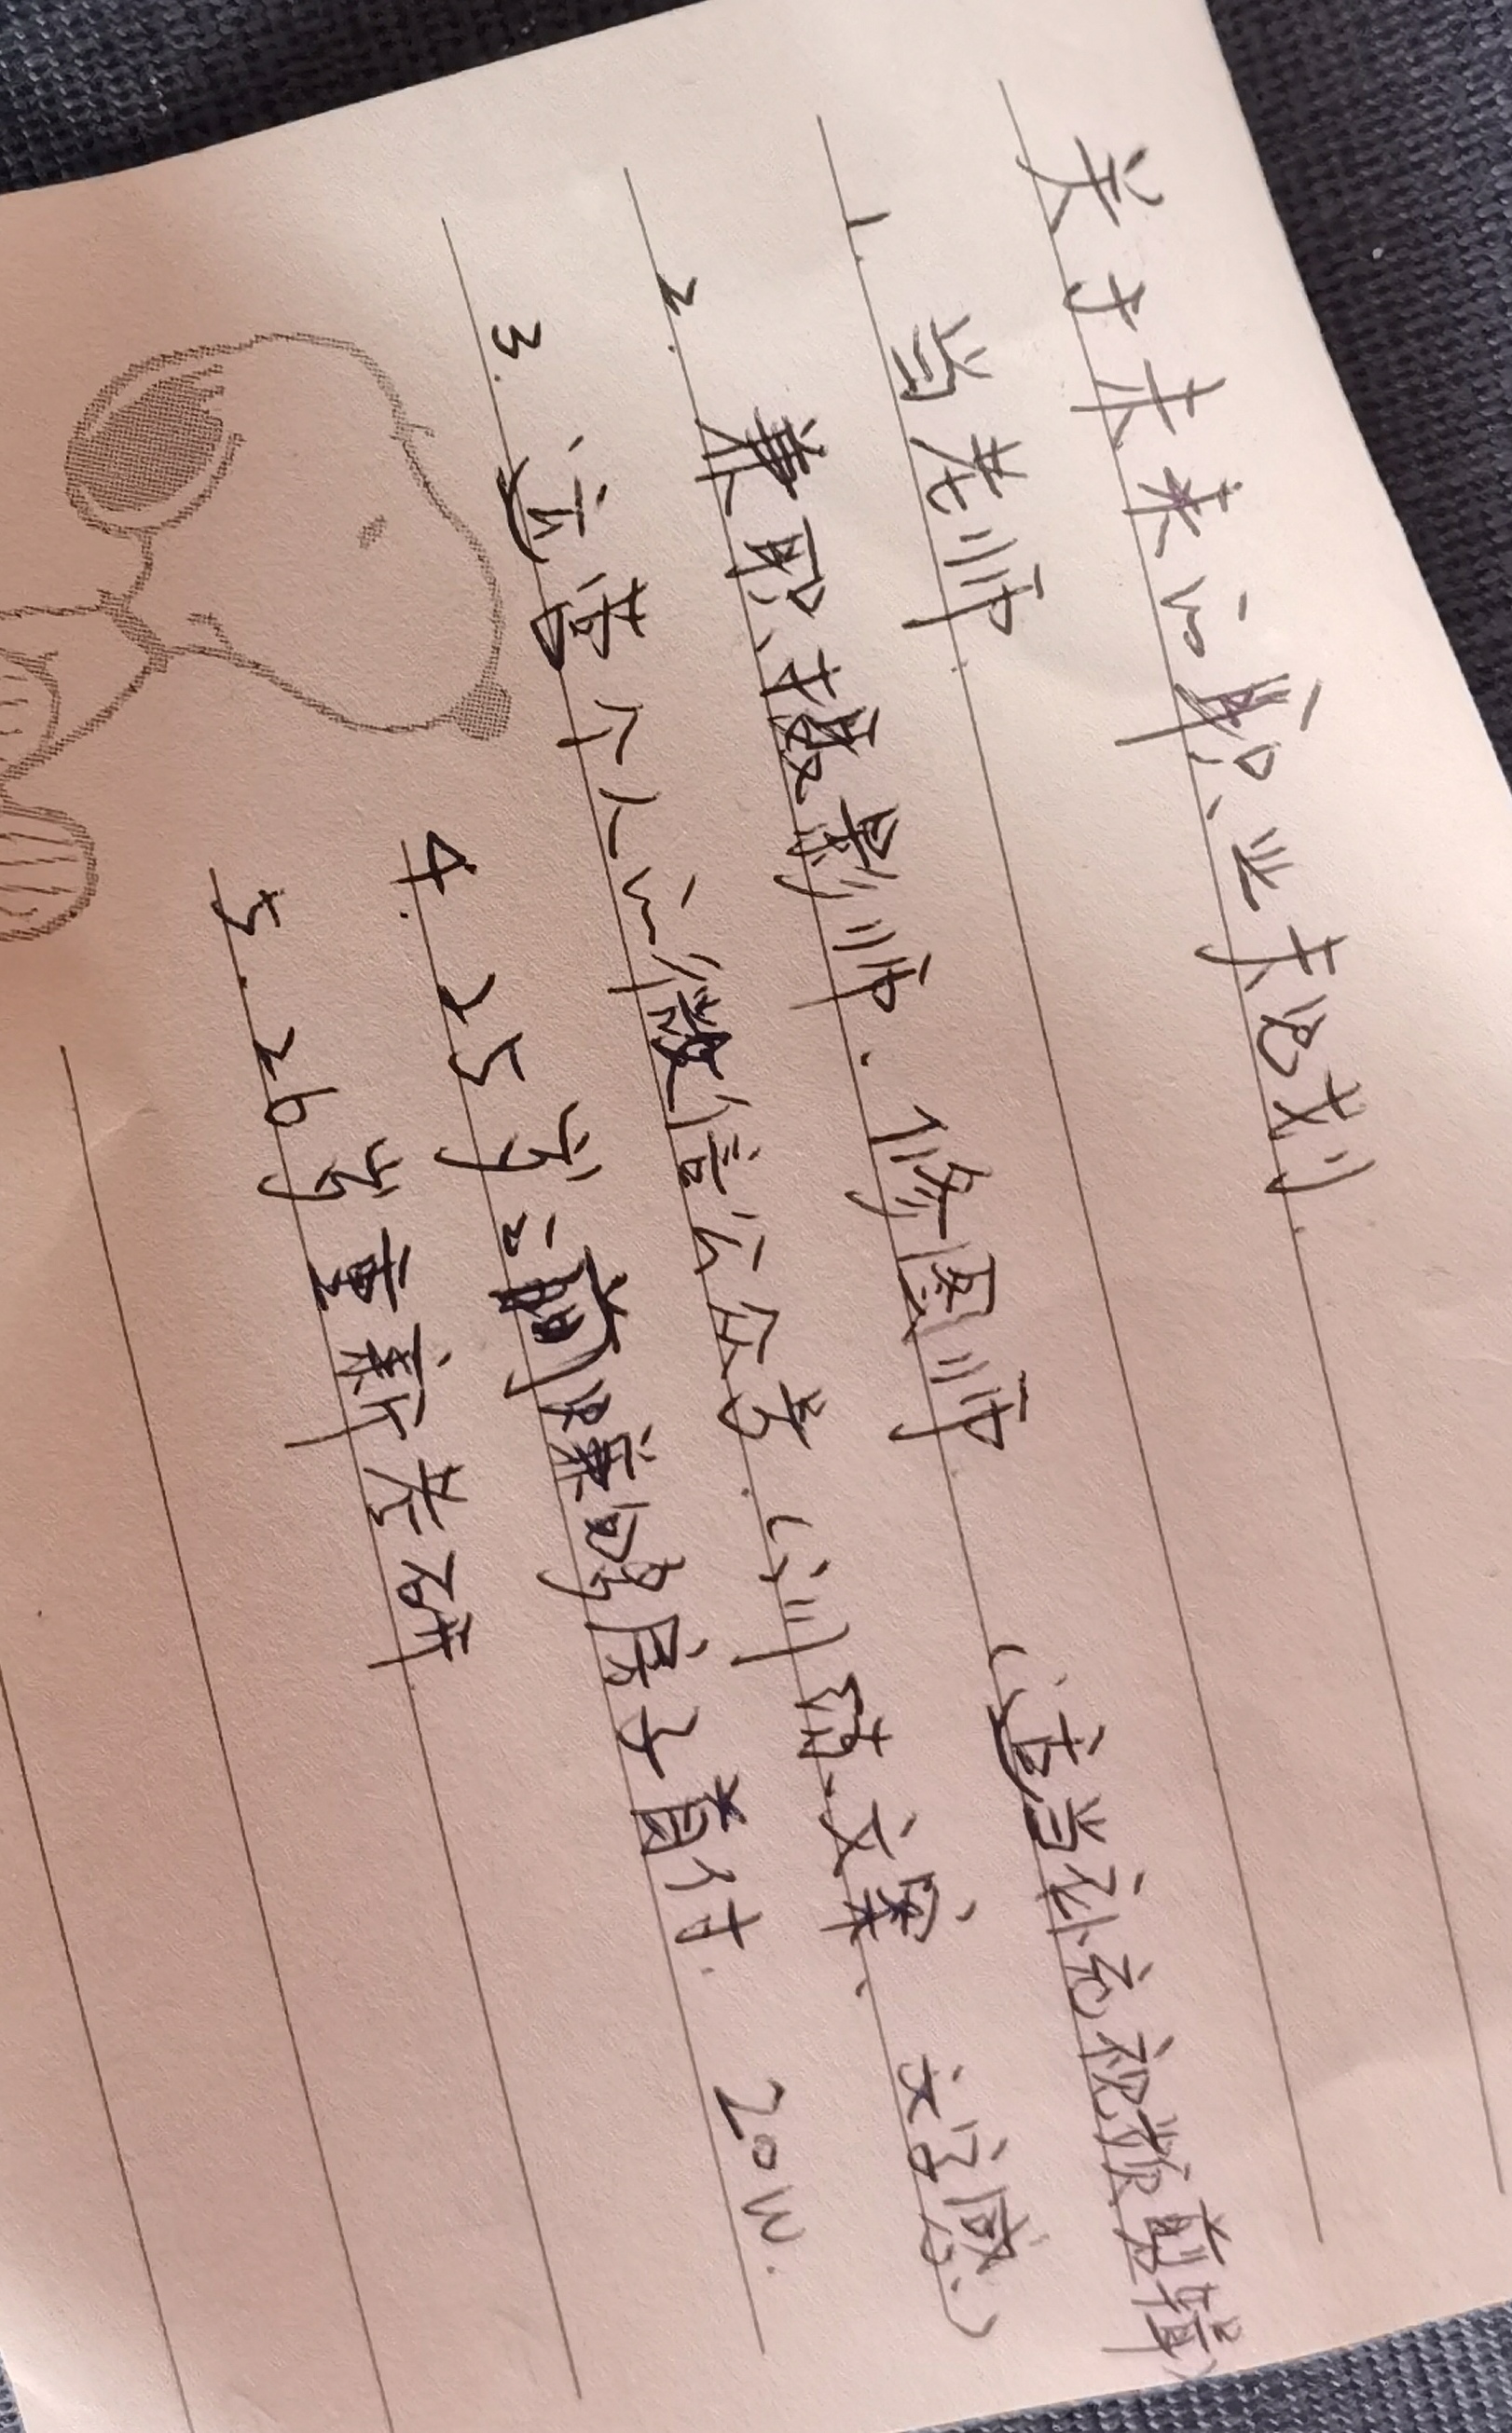 关于未来的职业规划.
1. 当老师.
2. 兼职摄影师. 修图师. (适当补充视频剪辑)
3. 运营个人的微信公众号. (训练文案、文字感.)
4. 25岁之前赚够房子首付. 20W.
5. 26岁重新考研.